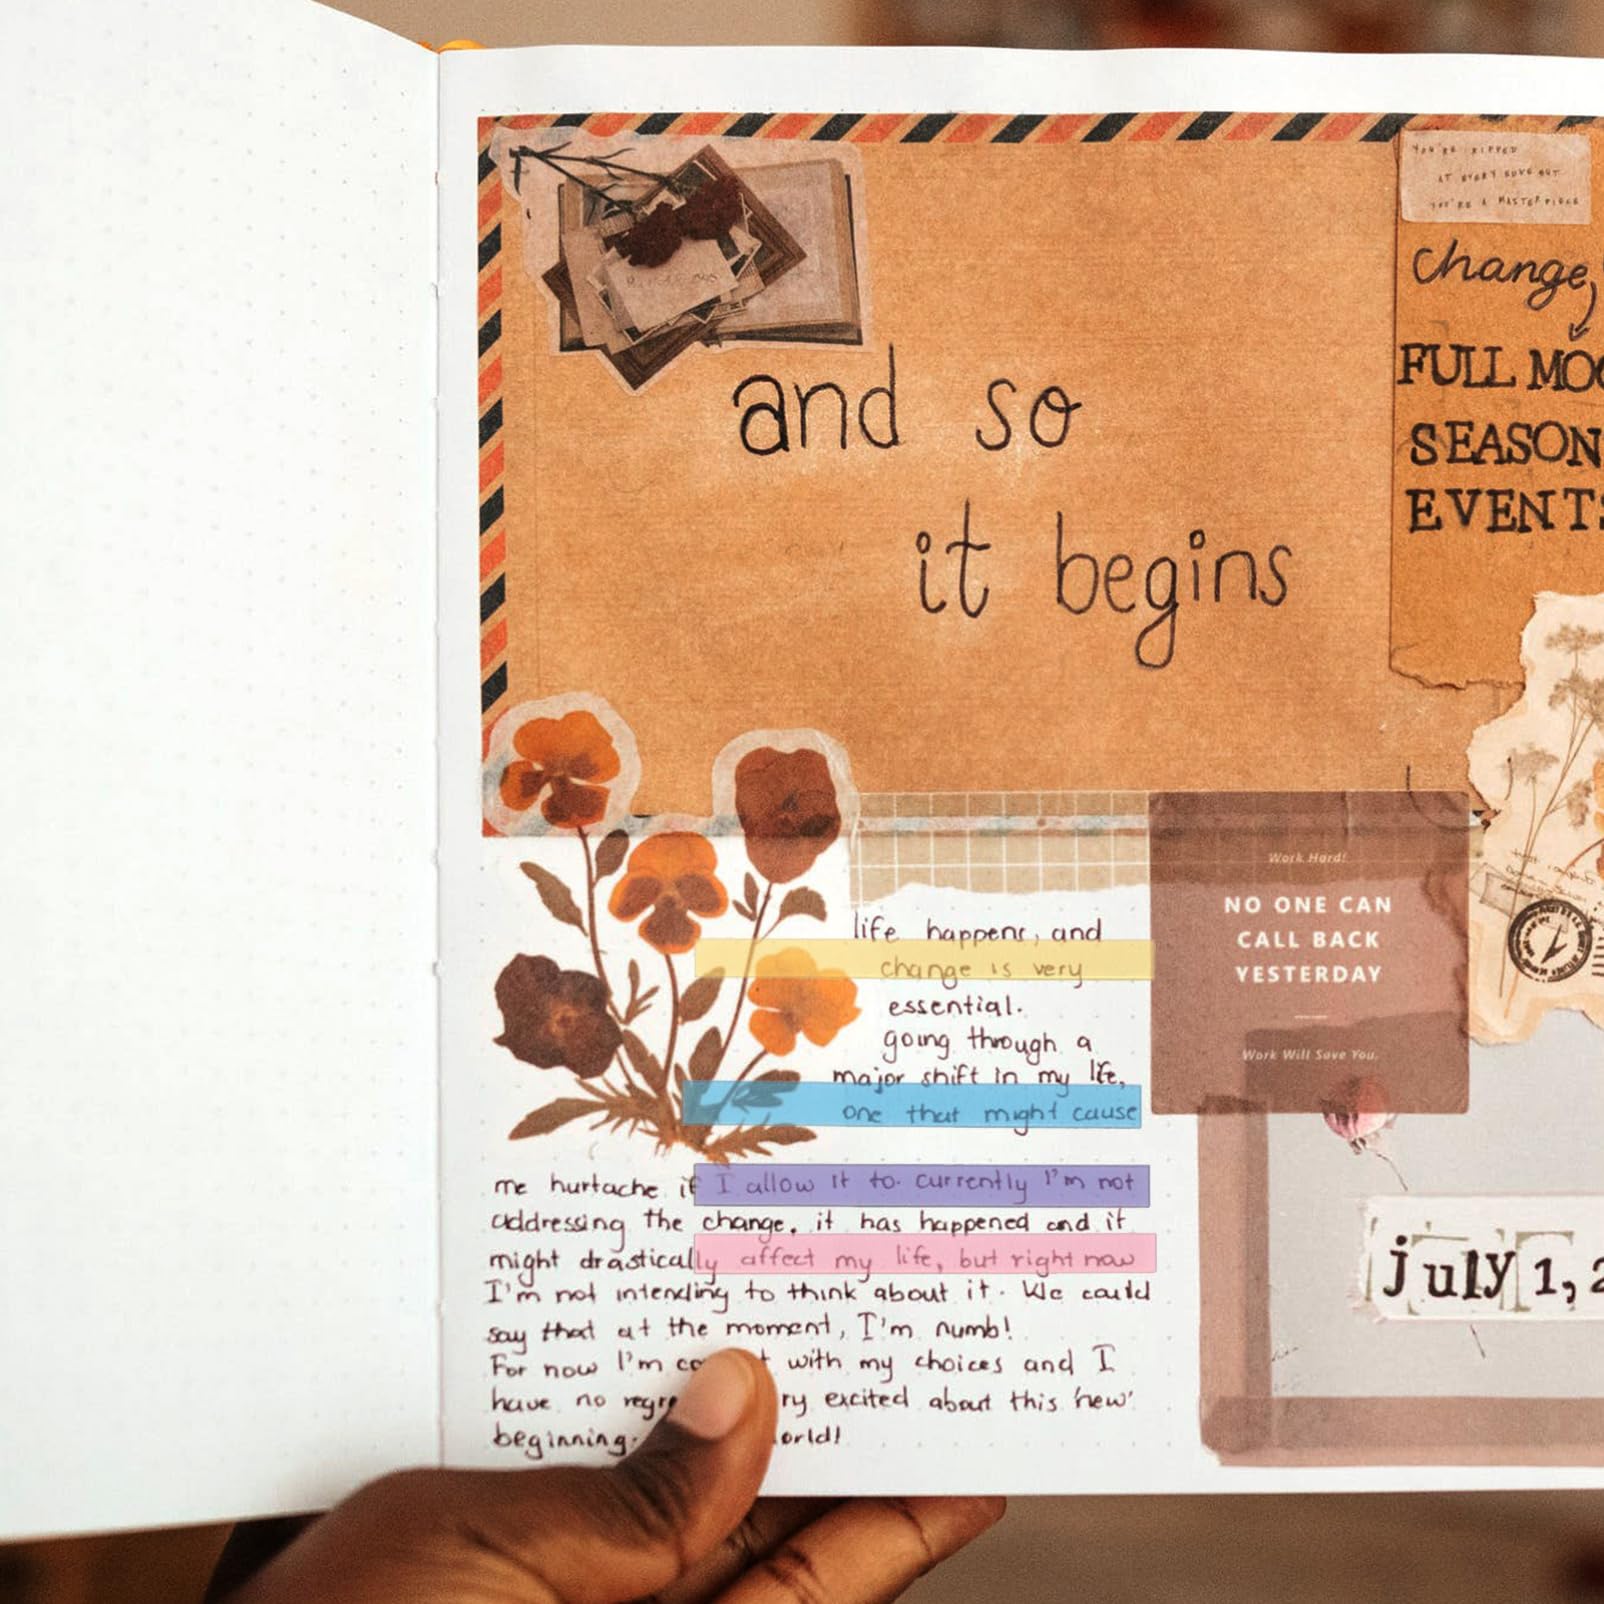 YOU'RE RIPPED
AT EVERY EDGE BUT
YOU'RE A MASTERPIECE
change,
FULL MOO
SEASON
EVENTS
and so
it begins
Work Hard!
NO ONE CAN
CALL BACK
YESTERDAY
Work Will Save You.
life happens, and
change is very
essential.
going through a
major shift in my life,
one that might cause
me hurtache if I allow it to. currently I'm not
addressing the change, it has happened and it
might drastically affect my life, but right now
I'm not intending to think about it. We could
say that at the moment, I'm numb!
For now I'm with my choices and I
have no excited about this 'new'
beginning.
july 1, 2